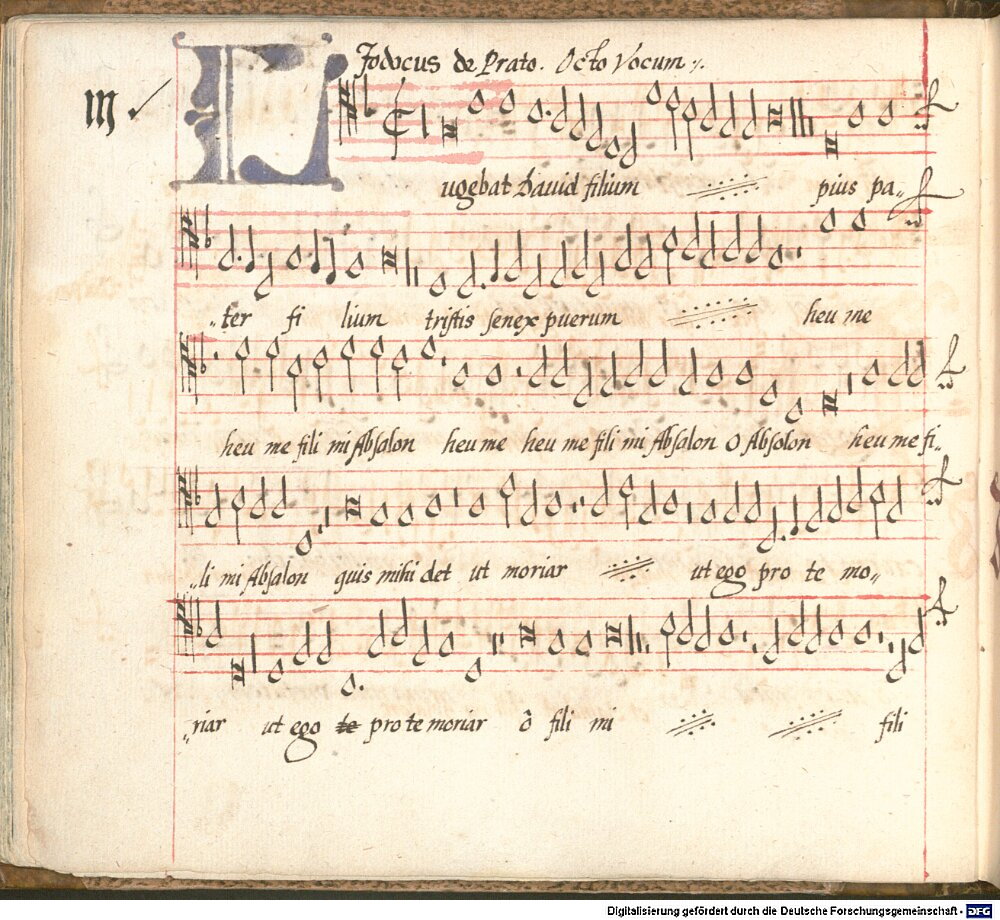 Jodocus de Prato. Octo Vocum
III
Lugebat Dauid filium pius pa„
„ter fi lium tristis senex puerum heu me
heu me fili mi Absalon heu me heu me fili mi Absalon O Absolon heu me fi„
„li mi Absalon quis mihi det ut moriar ut ego pro te mo„
„riar ut ego te pro te moriar ô fili mi fili
Digitalisierung gefördert durch die Deutsche Forschungsgemeinschaft - DFG